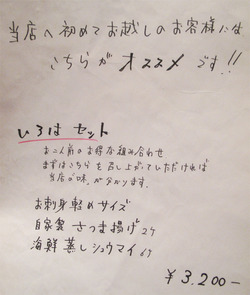 当店へ初めてお越しのお客様には
こちらが オススメ です!!
いろは セット
お二人前のお得な組み合わせ
まずはこちらを召し上がっていただければ
当店の味が分かります。
お刺身軽めサイズ
自家製 さつま揚げ 2ケ
海鮮蒸しシュウマイ 6ケ
¥3.200-